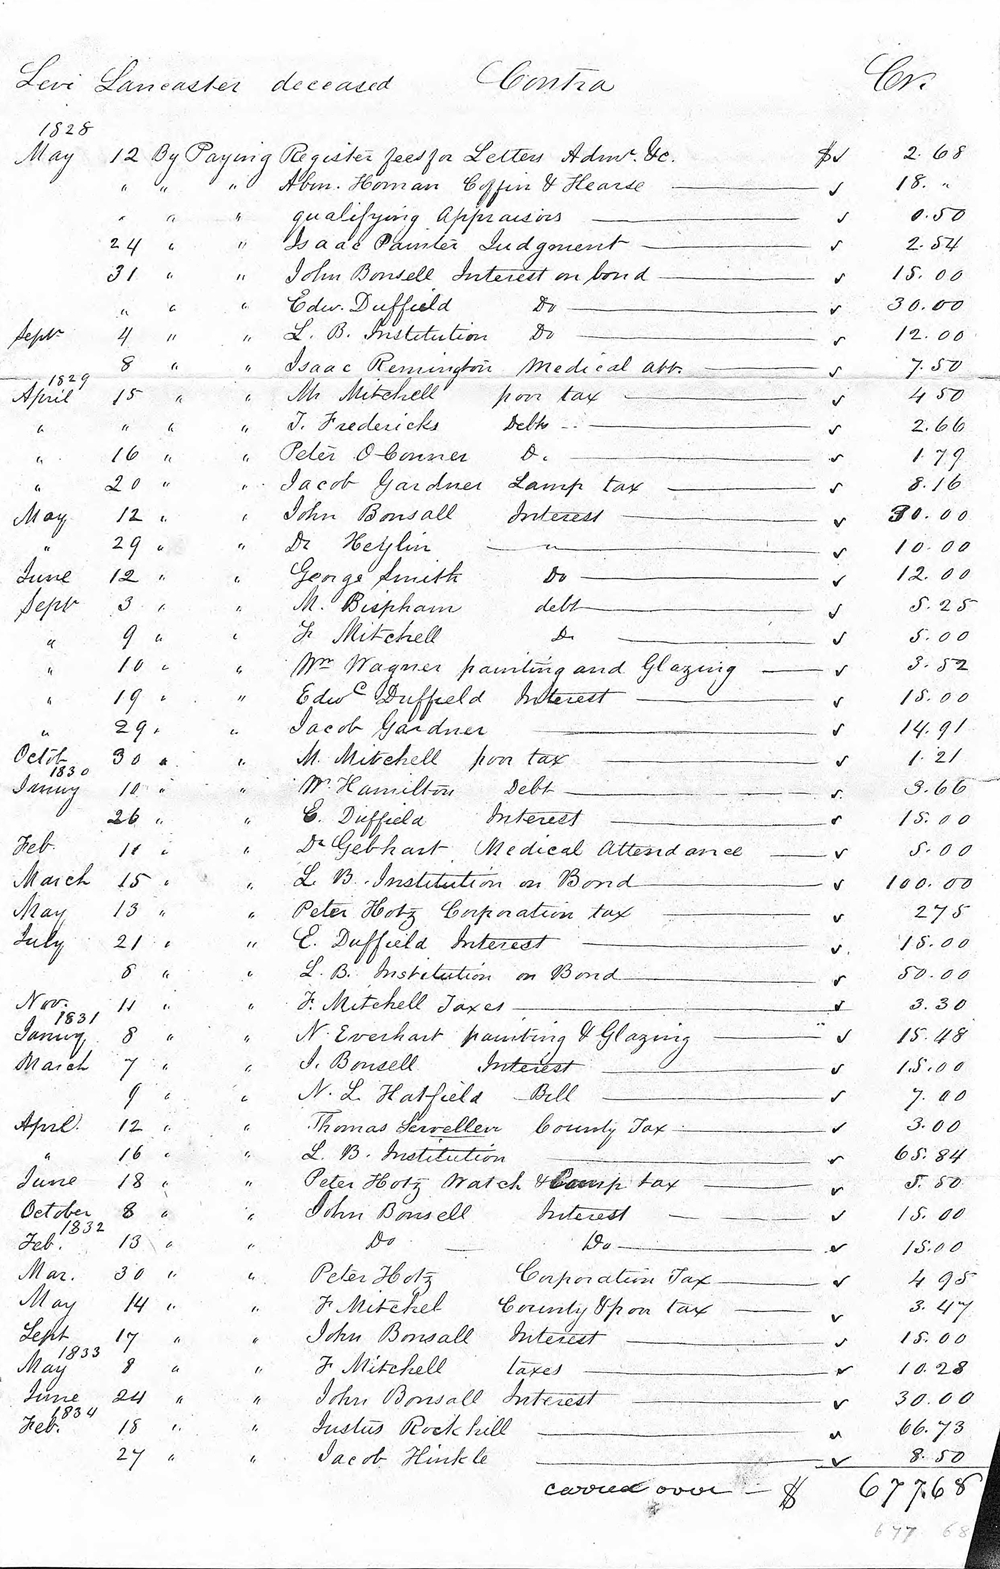 Levi Lancaster deceased Contra Cr.
1828
May 12 By Paying Register fees for Letters Admr. &c. $ 2.68
" " " Abm. Homan Coffin & Hearse 18. "
" " " qualifying Appraisors 0.50
24 " " Isaac Painter Judgment 2.54
31 " " John Bonsell Interest on bond 15.00
" " " Edw. Duffield Do 30.00
Sept 4 " " L. B. Institution Do 12.00
8 " " Isaac Remington Medical att. 7.50
1829
April 15 " " M Mitchell poor tax 4 50
" " " " T. Fredericks Debts 2.66
" 16 " " Peter O Conner D. 1.79
" 20 " " Jacob Gardner Lamp tax 8.16
May 12 " " John Bonsall Interest 30.00
" 29 " " Dr Heylin " 10.00
June 12 " " George Smith Do 12.00
Sept 3 " " M. Bispham debt 5.25
" 9 " " F Mitchell D. 5.00
" 10 " " Wm Wagner painting and Glazing 3.52
" 19 " " Edwd Duffield Interest 15.00
" 29 " " Jacob Gardner 14.91
Octob 30 " " M. Mitchell poor tax 1.21
1830
Janury 10 " " W. Hamilton Debt 3.66
26 " " E. Duffield Interest 15.00
Feb. 11 " " Dr Gebhart Medical Attendance 5.00
March 15 " " L. B. Institution on Bond 100.00
May 13 " " Peter Hotz Corporation tax 2 75
July 21 " " E. Duffield Interest 15.00
8 " " L. B. Institution on Bond 50.00
Nov. 11 " " F. Mitchell Taxes 3.30
1831
Janury 8 " " N. Everhart painting & Glazing 15.48
March 7 " " J. Bonsell Interest 15.00
9 " " N. L. Hatfield Bill 7.00
April 12 " " Thomas Lewellen County Tax 3.00
" 16 " " L. B. Institution 65.84
June 18 " " Peter Hotz Watch & Lamp tax 5.50
October 8 " " John Bonsell Interest 15.00
1832
Feb. 13 " " Do Do 15.00
Mar. 30 " " Peter Hotz Corporation Tax 4 95
May 14 " " F Mitchel County & poor tax 3.47
Sept 17 " " John Bonsall Interest 15.00
1833
May 8 " " F Mitchell taxes 10.28
June 24 " " John Bonsall Interest 30.00
1834
Feb. 18 " " Justus Rockhill 66.73
27 " " Jacob Hinkle 8.50
carried over $ 677.68
677 68